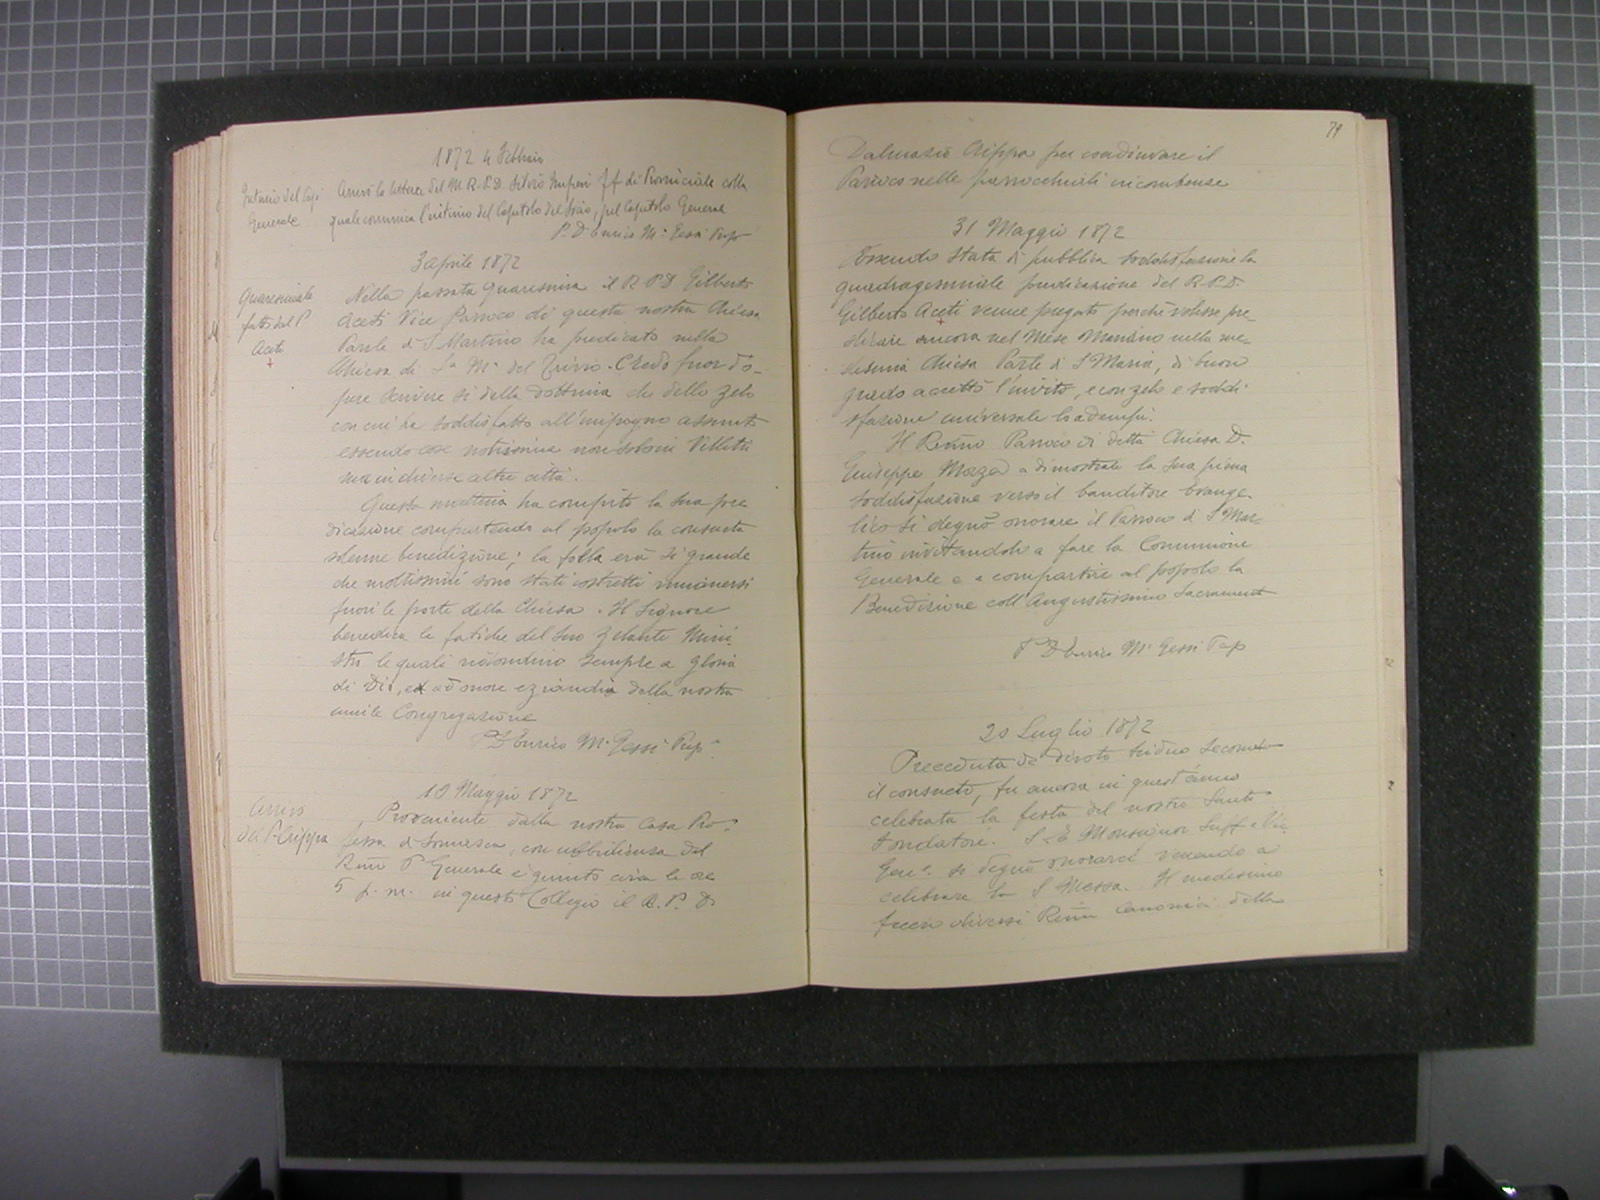 1872 4 Febbraio
Intimo del Cap.
Generale
Arrivò la lettera del M. R. P. D. Silvio Imperi ff di Provinciale colla
quale comunica l'intimo del Capitolo del Socio, pel Capitolo Generale
P. D. Enrico Mª Gessi Prep
3 aprile 1872
Quaresimale
fatto dal P
Aceti
+
Nella passata quaresima il R P D Gilberto
Aceti Vice Parroco di questa nostra Chiesa
Parrle di S. Martino ha predicato nella
Chiesa di Sª Mª del Trivio. Credo fuor d'o-
pera scrivere sì della dottrina che dello zelo
con cui ha soddisfatto all'impegno assunto
essendo cose notissime non solo in Velletri
ma in diverse altre città.
Questa mattina ha compito la sua pre
dicazione compartendo al popolo la consueta
solenne benedizione; la folla era sì grande
che moltissimi sono stati costretti rimanersi
fuori le porte della Chiesa. Il Signore
benedica le fatiche del suo zelante Mini
stro le quali ridondino sempre a gloria
di Dio, ed ad onore eziandio della nostra
umile Congregazione
P. D. Enrico Mª Gessi Prep.
10 Maggio 1872
Arrivo
del P. Crippa
Proveniente dalla nostra Casa Pro-
fessa di Somasca, con ubbidienza del
Rmo P Generale è giunto circa le ore
5 p. m. in questo Collegio il R. P. D.
79
Dalmazio Crippa per coadiuvare il
Parroco nelle parrocchiali incombenze
31 Maggio 1872
Essendo stata di pubblica soddisfazione la
quadragesimale predicazione del R. P. D.
Gilberto Aceti venne pregato perchè volesse pre-
+
dicare ancora nel Mese Mariano nella me-
desima Chiesa Parrle di S Maria, di buon
grado accettò l'invito, e con zelo e soddi
sfazione universale lo adempì.
Il Revmo Parroco di detta Chiesa D.
Giuseppe Mazza a dimostrare la sua piena
soddisfazione verso il banditore Evange
lico si degnò onorare il Parroco di S Mar-
tino invitandolo a fare la Communione
Generale e a compartire al popolo la
Benedizione coll'Augustissimo Sacramento
P D Enrico Mª Gessi Prep
20 Luglio 1872
Preceduta da divoto triduo secondo
il consueto, fu ancora in quest'anno
celebrata la festa del nostro Santo
Fondatore. S. E Monsignor Suff e Vic
Genle. si degnò onorarci venendo a
celebrare la S Messa. Il medesimo
fecero diversi Rmi Canonici della